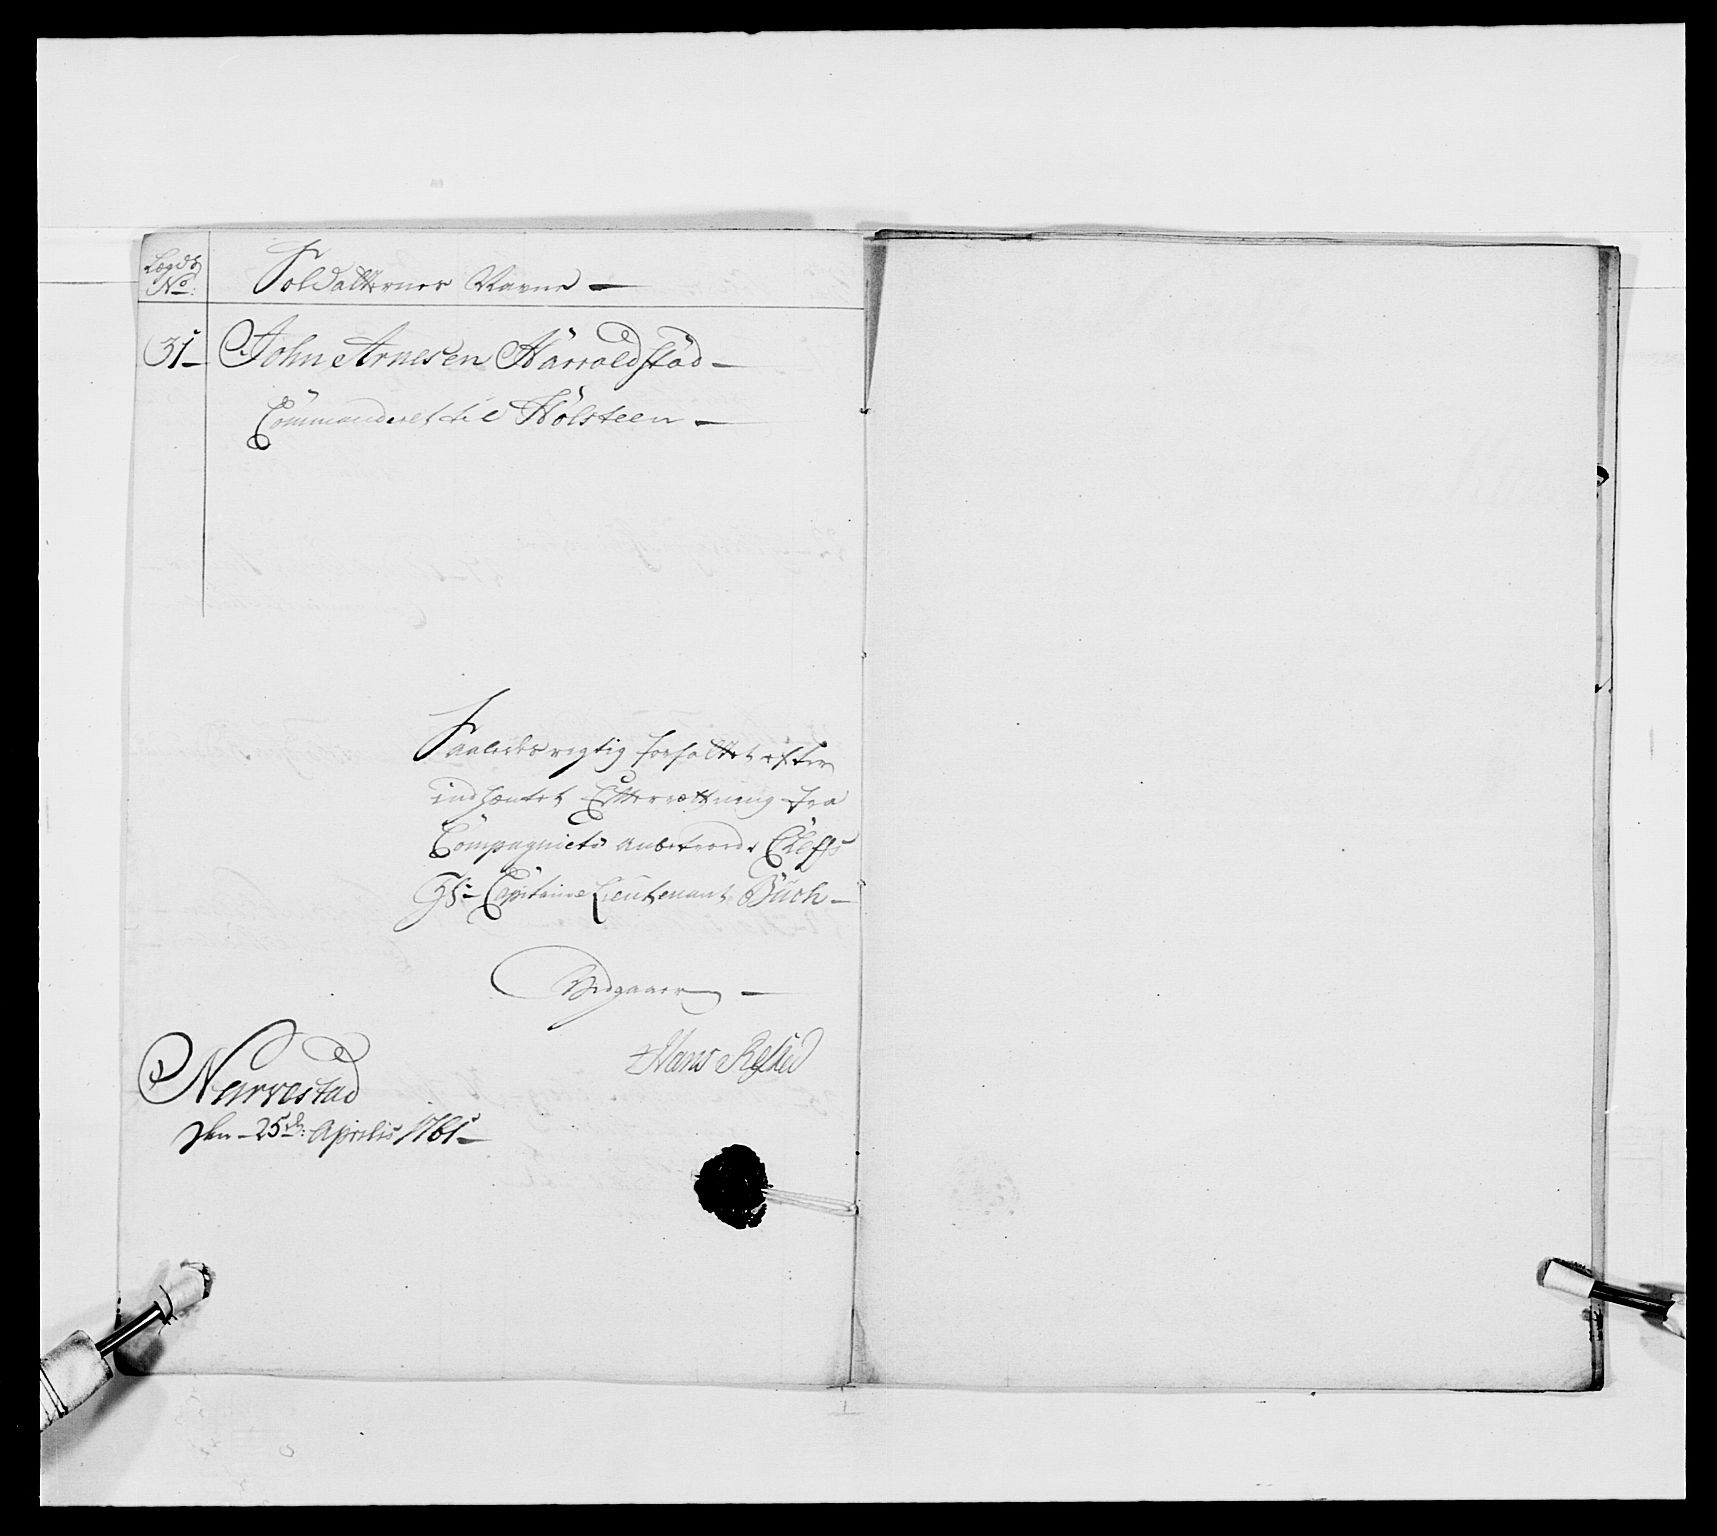 Lægds
No:
Soldatternes Navne —
31 — John Arnesen Harroldstad —
Commanderet til Holsteen —
Saaledes rigtig forfattet efter
indhæntet Efterrættning fra
Compagniets anbetroede Cheffs
Hr. Capitaine Lieutenant Buch —
Hans
Narvestad
den — 25de: Aprilis 1761 —